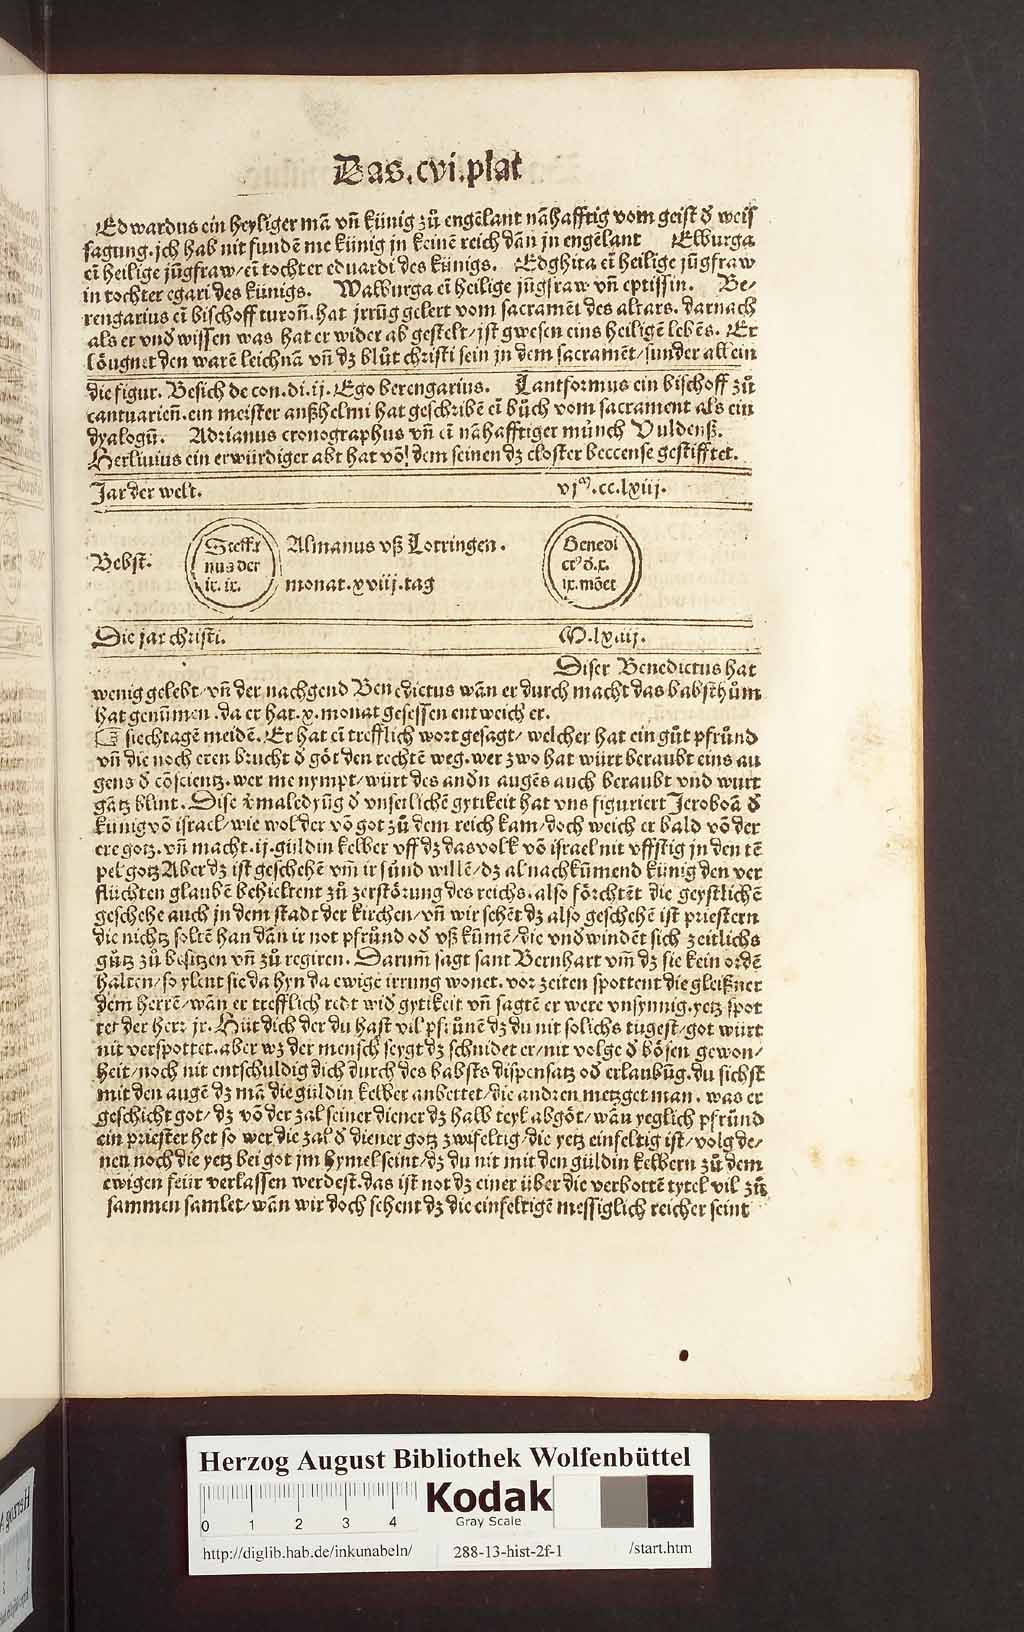 Das.cvi.plat
Edwardus ein heyliger mã vñ künig zů engẽlant nãhafftig vom geist d̕ weis
sagung.jch hab nit fundẽ me künig jn keinẽ reich dañ jn engẽlant Elburga
eĩ heilige jũgfraw/eĩ tochter eduardi des künigs. Edghita eĩ heilige jũgfraw
in tochter egari des künigs. Walburga eĩ heilige jũgfraw vñ eptissin. Be/
rengarius eĩ bischoff turoñ.hat jrrũg gelert vom sacramẽt des altars. darnach
als er vnd wissen was hat er wider ab gestelt/jst gwesen eins heiligẽ lebẽs. Er
löugnet den warẽ leichnã vñ dz blůt christi sein jn dem sacramẽt/sunder allein
die figur. Besich de con.di.ij. Ego berengarius. Lantformus ein bischoff zů
cantuarieñ.ein meister anßhelmi hat geschribẽ eĩ bůch vom sacrament als ein
dyalogũ. Adrianus cronographus vñ eĩ nãhafftiger münch Vuldenß.
Herliuius ein erwürdiger abt hat võ dem seinen dz closter beccense gestifftet.
Jar der welt. vjᵐ.cc.lxiij.
Bebst. Steffa
nus der
ix. ix. Almanus vß Lotringen.
monat.xviij.tag Benedi
ctꝰ d̕.x.
ix.mõet
Die jar christi. M.lxiij.
Diser Benedictus hat
wenig gelebt/vñ der nachgend Benedictus wãn er durch macht das babsthům
hat genũmen.da er hat.x.monat gesessen entweich er.
siechtagẽ meidẽ. Er hat eĩ trefflich wort gesagt/welcher hat ein gůt pfründ
vñ die noch eren brucht d̕ gõt den rechtẽ weg.wer zwo hat würt beraubt eins au
gens d̕ cõscientz.wer me nympt/würt des andn̕ augẽs auch beraubt vnd wurt
gãtz blint. Dise maledyũg d̕ vnseilichẽ gytikeit hat vns figuriert Jeroboã d̕
künig võ israel/wie wol der võ got zů dem reich kam/doch weich er bald võ der
ere gotz.vñ macht.ij.güldin kelber vff dz das volk võ israel nit vffstig jn den tẽ
pel gotz Aber dz ist geschehẽ vm̃ ir sünd willẽ/dz al nachkũmend künig den ver
flüchten glaubẽ behieltent zů zerstörung des reichs.also förchtẽt die geystlichẽ
geschehe auch jn dem stadt der kirchen/vñ wir sehẽt dz also geschehẽ ist priestern
die nichtz soltẽ han dãn ir not pfründ od̕ vß kũmẽ/die vnd windẽt sich zeitlichs
gůtz zů besitzen vñ zů regiren. Darum̃ sagt sant Bernhart vm̃ dz sie kein ordẽ
halten/so ylent sie da hyn da ewige irrung wonet.vor zeiten spottent die gleißner
dem herrẽ/wãn er trefflich redt wid̕ gytikeit vñ sagtẽ er were vnsynnig.yetz spot
tet der herr jr. Hüt dich der du hast vil pfrünẽ dz du nit solichs tügest/got würt
nit verspottet.aber wz der mensch seygt dz schnidet er/nit volge d̕ bösen gewon/
heit/noch nit entschuldig dich durch des babsts dispensatz od̕ erlaubũg.du sichst
mit den augẽ dz mã die güldin kelber anbettet/die andren metzget man. was er
geschicht got/dz võ der zal seiner diener dz halb teyl abgöt/wãn yeglich pfründ
ein priester het so wer die zal d̕ diener gotz zwifeltig/die yetz einfeltig ist/volg de/
nen noch die yetz bei got jm hymel seint/dz du nit mit den güldin kelbern zů dem
ewigen feür verlassen werdest.das ist not dz einer über die verbottẽ tytel vil zů
sammen samlet/wãn wir doch sehent dz die einfeltigẽ messiglich reicher seint
Herzog August Bibliothek Wolfenbüttel
0 1 2 3 4
Kodak
Gray Scale
http://diglib.hab.de/inkunabeln/ 288-13-hist-2f-1 /start.htm